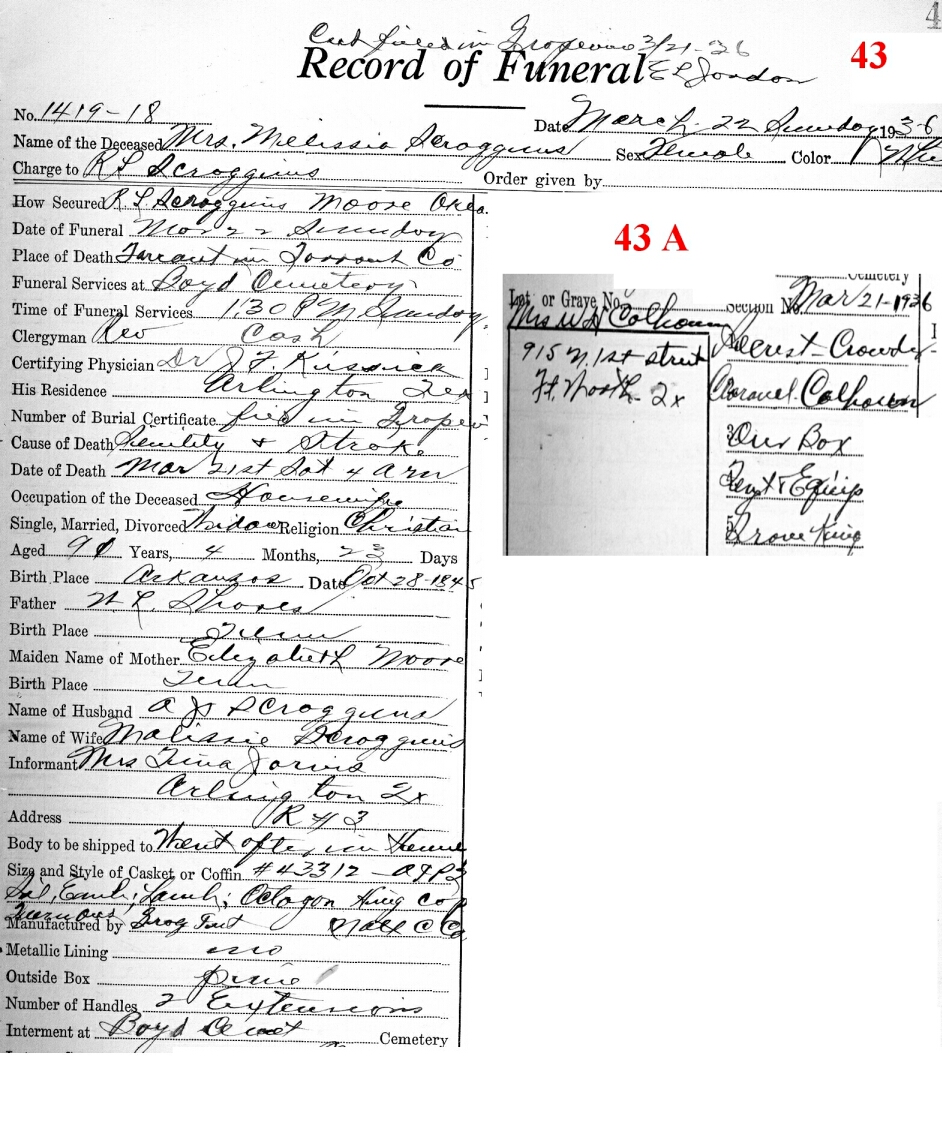 4
Cert filed in Grapevine 3/21-36
43
Record of Funeral E L Jordon
No. 1419-18
Date March 22 Sunday 1936
Name of the Deceased Mrs. Melissia Scroggins Sex Female Color
Charge to R L Scroggins Order given by
How Secured R. L Scroggins Moore Okla.
Date of Funeral Mar 22 Sunday
Place of Death Tarrant in Tarrant Co
Funeral Services at Boyd Cemetery
Time of Funeral Services 1:30 P M Sunday
Clergyman Rev Cash
Certifying Physician Dr J F
His Residence Arlington Tex
Number of Burial Certificate filed in Grapev
Cause of Death Senility & Stroke
Date of Death Mar 21st Sat 4 A M
Occupation of the Deceased Housewife
Single, Married, Divorced Widow Religion Christian
Aged 90 Years, 4 Months, 23 Days
Birth Place Arkansas Date Oct 28-1845
Father W L Shores
Birth Place Tenn
Maiden Name of Mother Elizabeth Moore
Birth Place Tenn
Name of Husband A J Scroggins
Name of Wife Malissie Scroggins
Informant Mrs Tina Jarvis
Arlington Tx
Address R # 3
Body to be shipped to Went after in Hearse
Size and Style of Casket or Coffin #43312 -
Octagon King
Manufactured by
Metallic Lining no
Outside Box pine
Number of Handles 2 Extensions
Interment at Boyd Cemet Cemetery
43 A
Cemetery
Lot or Grave No. Section No. Mar 21-1936
Mrs W H Calhoun
915 N. 1st street
Ft. Worth Tx
Crowdy
Calhoun
3 Our Box
Tent & Equip
5 Drove King